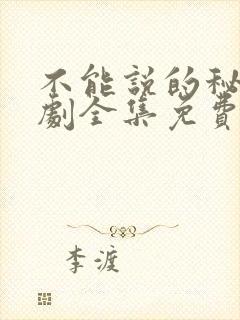 不能説的秘
劇全集免費
李渡